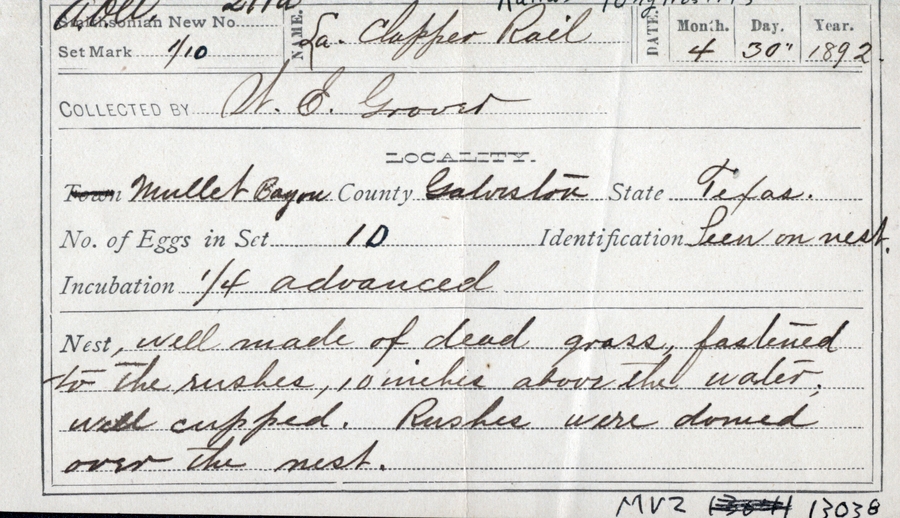 Coll 211a Rallus longirostris
Smithsonian New No. NAME. La. Clapper Rail DATE. Month. Day. Year.
Set Mark 1/10 4 30" 1892.
COLLECTED BY W. E. Grover
LOCALITY.
Town Mullet Bayou County Galveston State Texas.
No. of Eggs in Set 10 Identification Seen on nest.
Incubation 1/4 advanced
Nest, well made of dead grass, fastened
to the rushes, 10 inches above the water,
well cupped. Rushes were domed
over the nest.
MVZ 13038